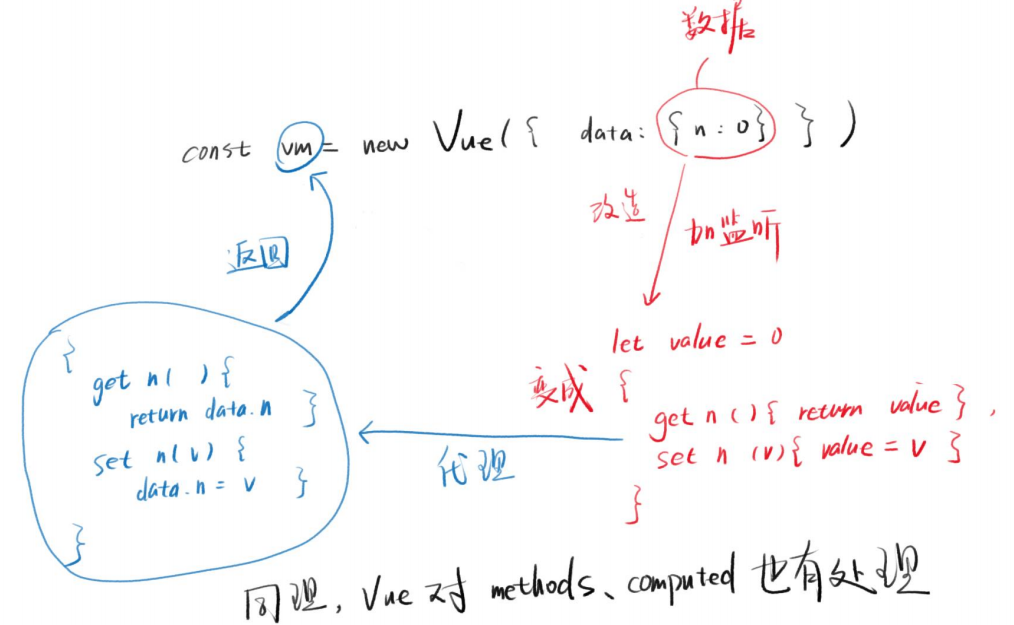 数据
const vm = new Vue({ data: {n:0} })
改造
加监听
返回
let value = 0
变成 {
get n(){ return value },
set n(v){ value = v }
}
代理
{
get n( ){
return data.n }
set n(v) {
data.n = v }
}
同理, Vue 对 methods、computed 也有处理